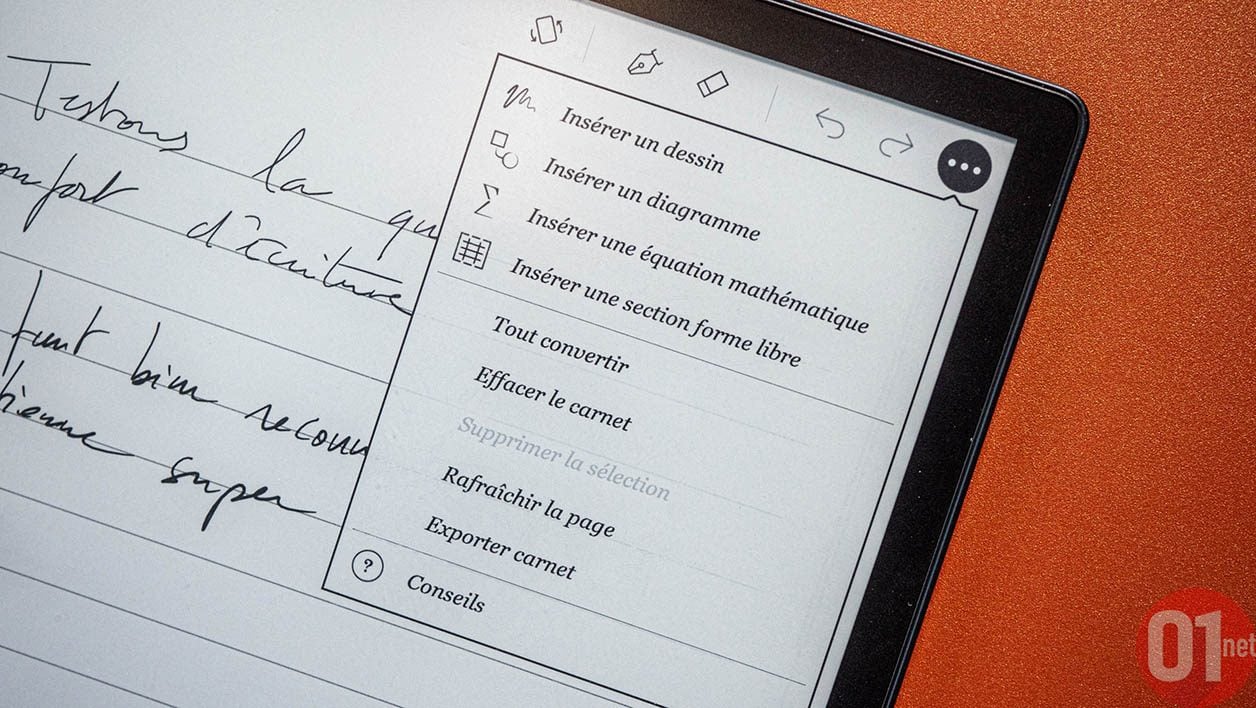 Testons la qu
onfort d'écriture
faut bien reconn
tienne super
Insérer un dessin
Insérer un diagramme
Insérer une équation mathématique
Insérer une section forme libre
Tout convertir
Effacer le carnet
Supprimer la sélection
Rafraîchir la page
Exporter carnet
? Conseils
01net